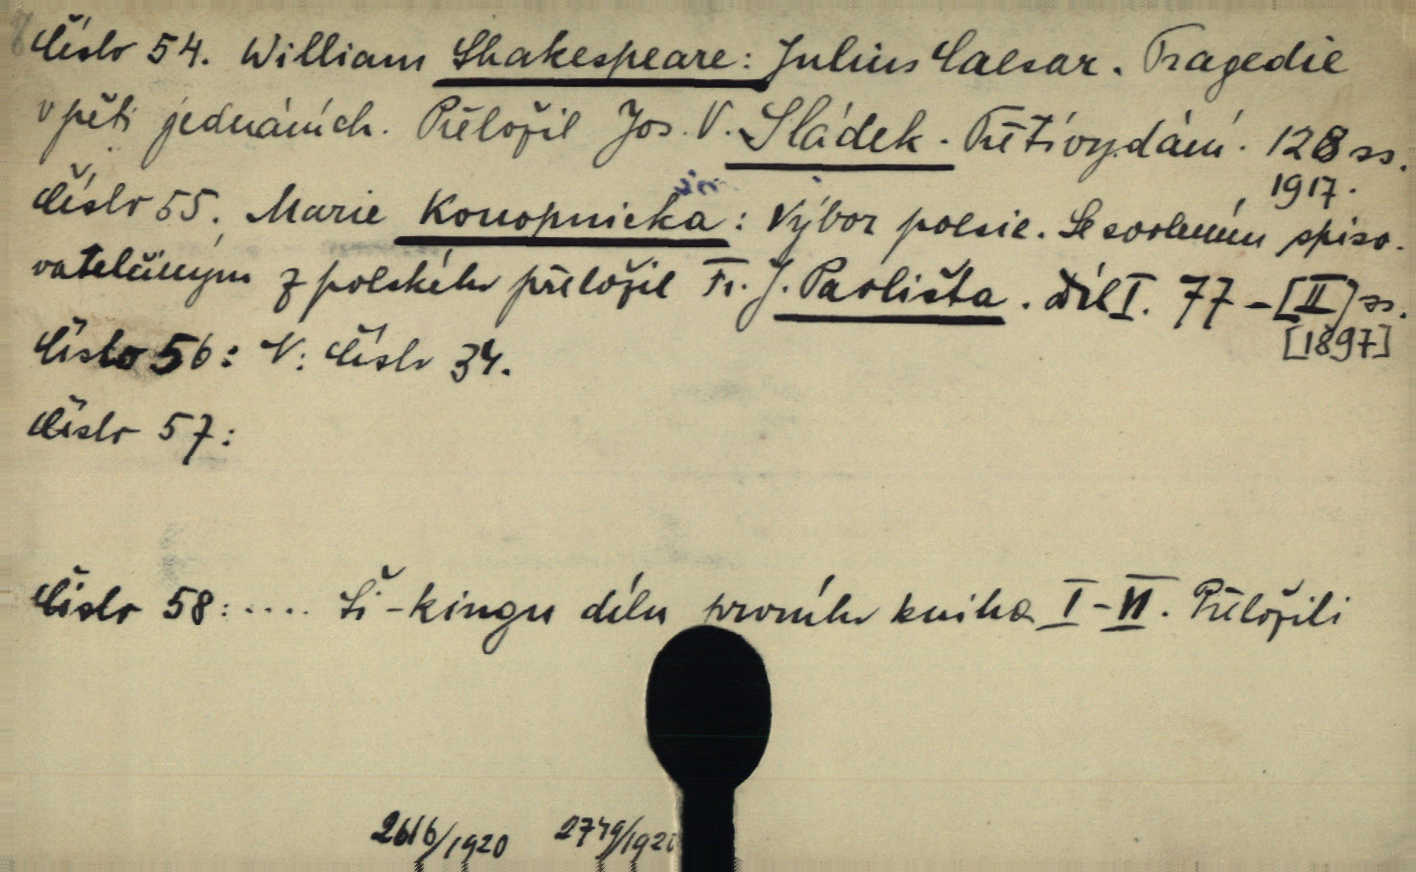 Číslo 54. William Shakespeare: Julius Caesar. Tragedie
v pěti jednáních. Přeložil Jos. V. Sládek. Třetí vydání. 128 ss.
1917.
Číslo 55. Marie Konopnicka: Výbor poesie. Se svolením spiso-
vatelčiným z polského přeložil Fr. J. Pavlišta. Díl I. 77-[II] ss.
[1897]
Číslo 56: V: Číslo 34.
Číslo 57:
Číslo 58: .... Ši-kingu dílu prvního kniha I-VI. Přeložili
2616/1920 2749/192